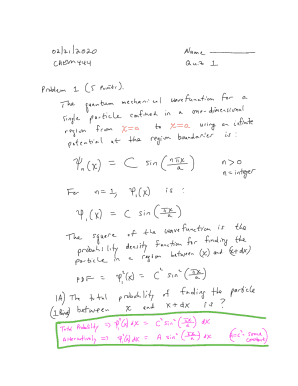 02/21/2020 Name
CHEM 444 Quiz 1
Problem 1 (5 Points).
The quantum mechanical wavefunction for a
single particle confined in a one-dimensional
region from x=0 to x=a using an infinite
potential at the region boundaries is:
Ψn(x) = C sin(nπx/a) n>0
n=integer
For n=1, Ψ1(x) is:
Ψ1(x) = C sin(πx/a)
The square of the wavefunction is the
probability density function for finding the
particle in a region between (x) and (x+dx)
PDF = Ψ1²(x) = C² sin²(πx/a)
1A) The total probability of finding the particle
between x and x+dx is?
Total Probability ⇒ Ψ1²(x) dx = C² sin²(πx/a) dx
Alternatively ⇒ Ψ1²(x) dx = A sin²(πx/a) dx (A=C² some
constant)